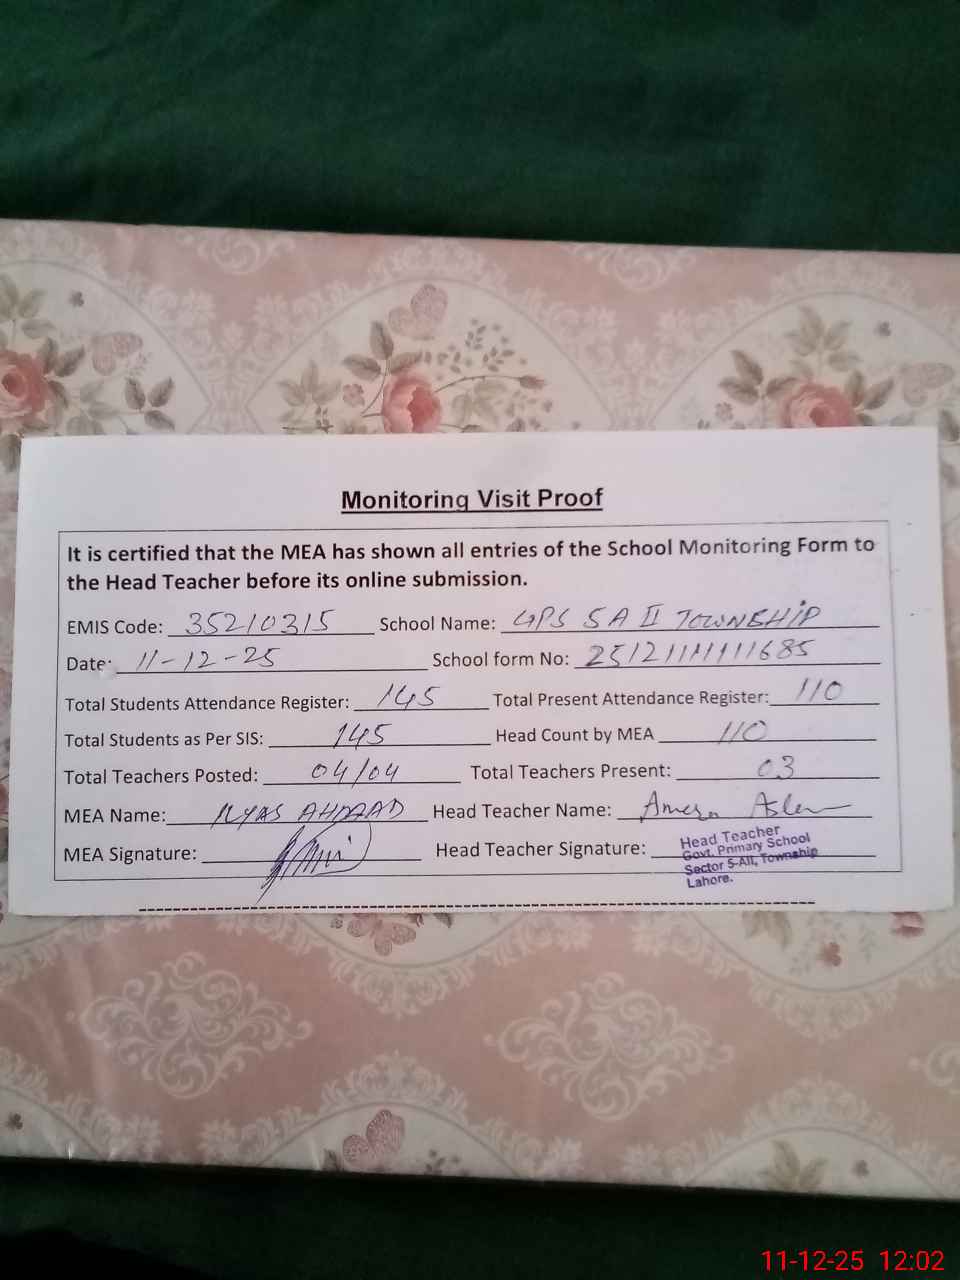 Monitoring Visit Proof
It is certified that the MEA has shown all entries of the School Monitoring Form to
the Head Teacher before its online submission.
EMIS Code: 35210315 School Name: GPS 5 A II TOWNSHIP
Date: 11-12-25 School form No:
Total Students Attendance Register: 145 Total Present Attendance Register: 110
Total Students as Per SIS: 145 Head Count by MEA 110
Total Teachers Posted: 04/04 Total Teachers Present: 03
MEA Name: ILYAS AHMAD Head Teacher Name:
MEA Signature: Head Teacher Signature:
Head Teacher
Govt. Primary School
Sector 5-AII, Township
Lahore.
11-12-25 12:02